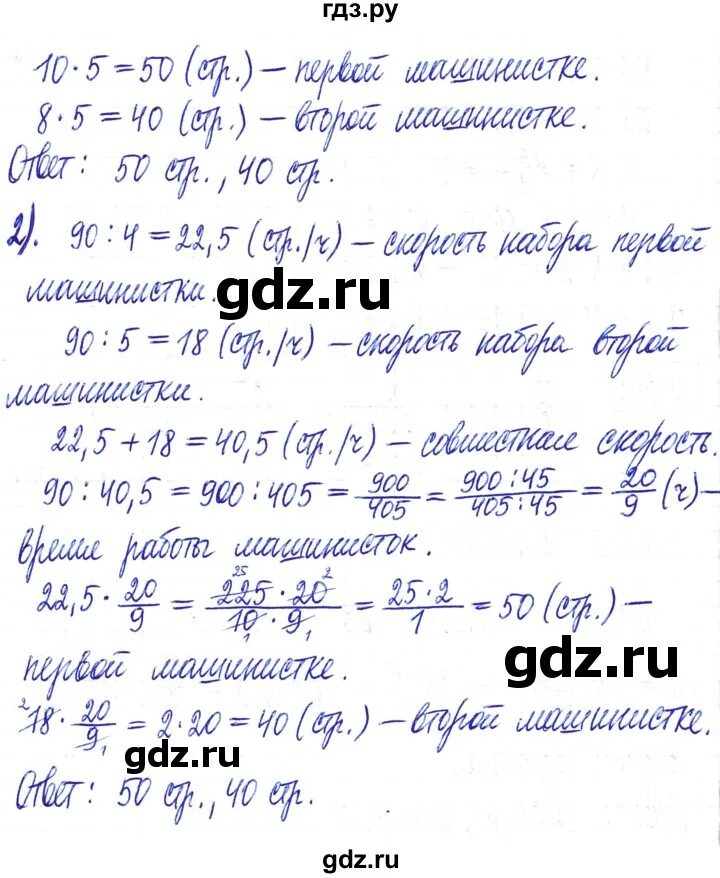 гдз.ру
10 · 5 = 50 (стр.) – первой машинистке.
8 · 5 = 40 (стр.) – второй машинистке.
Ответ: 50 стр., 40 стр.
2). 90 : 4 = 22,5 (стр./ч) – скорость набора первой
машинистки.
gdz.ru
90 : 5 = 18 (стр./ч) – скорость набора второй
машинистки.
22,5 + 18 = 40,5 (стр./ч) – совместная скорость.
90 : 40,5 = 900 : 405 = 900/405 = 900:45/405:45 = 20/9 (ч) –
время работы машинисток.
22,5 · 20/9 = 225 · 20/10 · 9 = 25 · 2/1 = 50 (стр.) –
первой машинистке.
gdz.ru
18 · 20/9 = 2 · 20 = 40 (стр.) – второй машинистке.
gdz.ru
Ответ: 50 стр., 40 стр.
gdz.ru